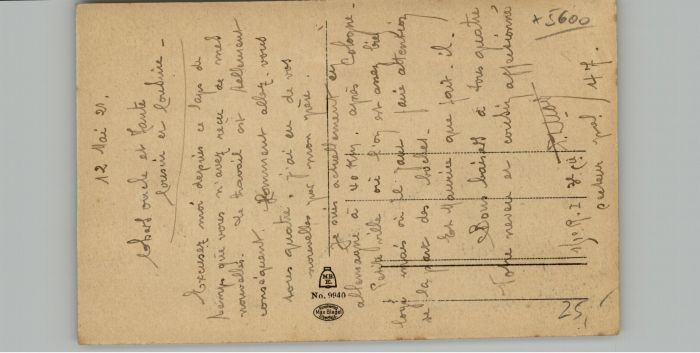 12 Mai 21.
Chers oncle et tante
Cousin et Cousine -
Excusez moi depuis ce laps de
temps que vous n'avez reçu de mes
nouvelles. Le travail est tellement
conséquent. Comment allez-vous
tous quatre, j'ai eu de vos
nouvelles par mon père.
Je suis actuellement en
allemagne à 40 Km. après Cologne.
Petite ville où l'on est assez bien
logé mais où il faut faire attention
de la part des boches.
Et Maurice que fait-il.
Bons baisers à tous quatre
Votre neveu et cousin affectionné
secteur postal 47.
No. 9940
+5600
25,